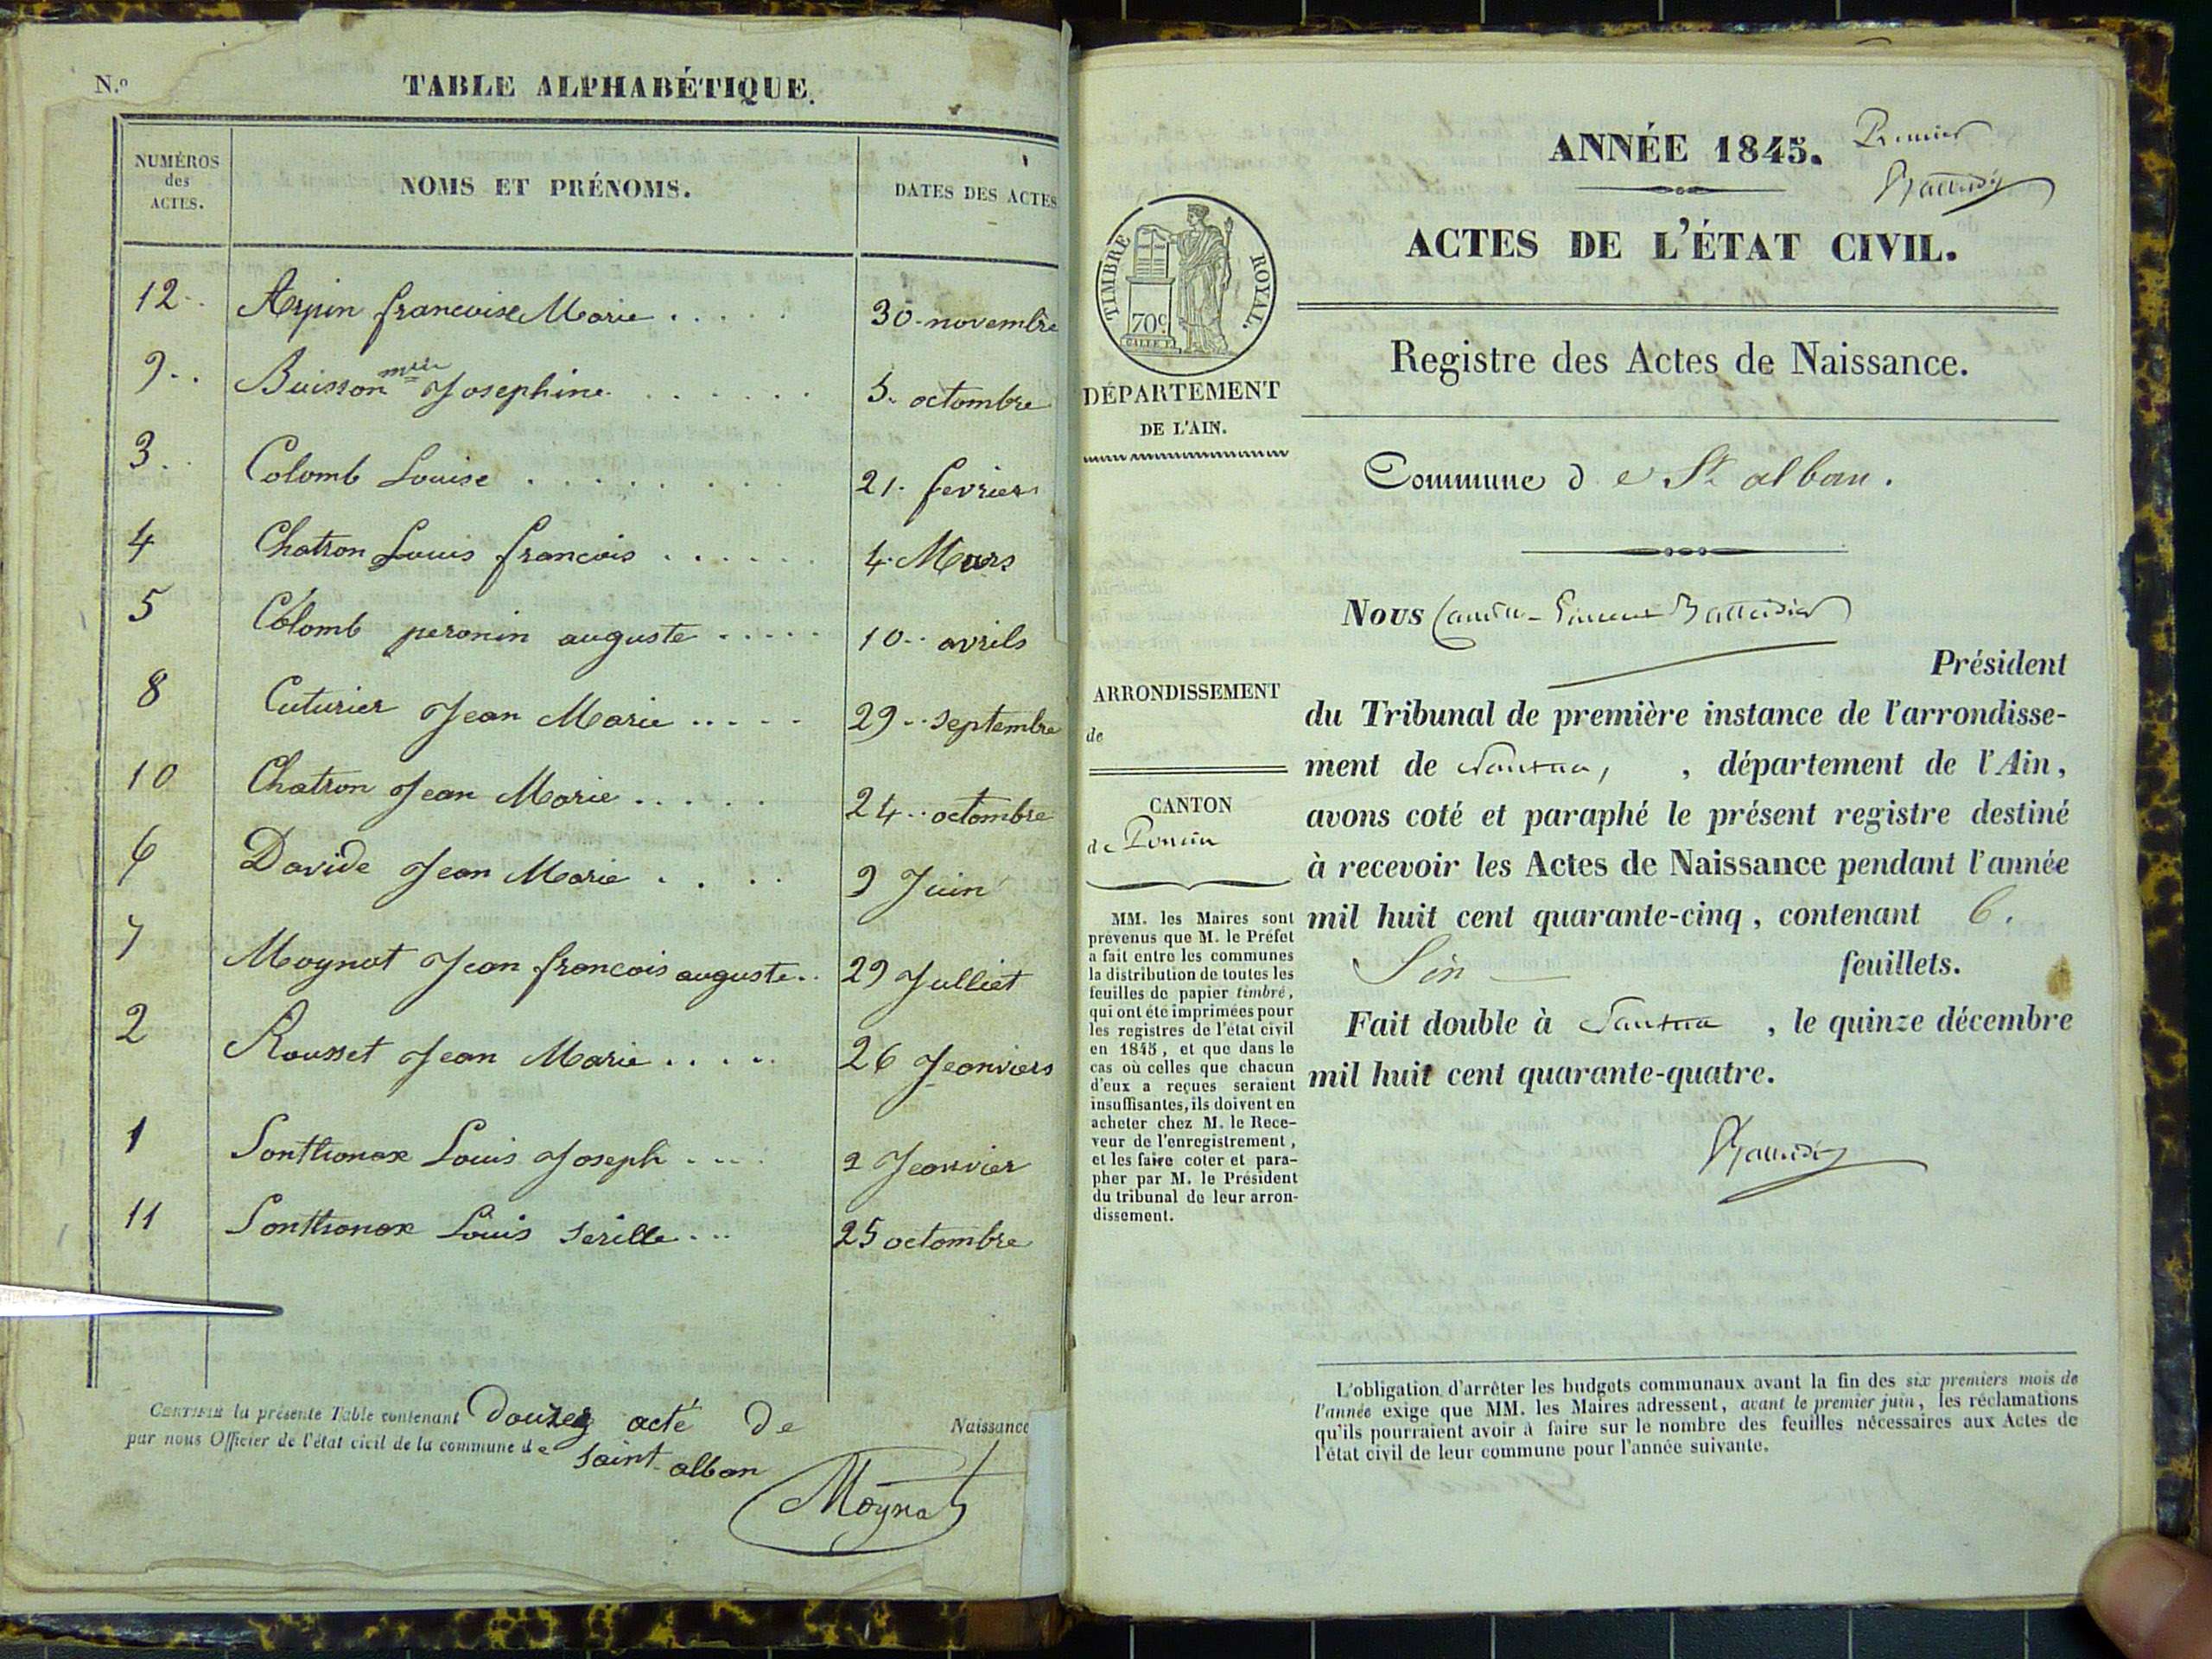 N.º TABLE ALPHABÉTIQUE.
NUMÉROS des ACTES. NOMS ET PRÉNOMS. DATES DES ACTES
12.. Arpin francoise Marie ..... 30. novembre
9.. Buisson mie Josephine ...... 5. octombre
3.. Colomb Louise ........ 21. fevriers
4 Chatron Louis francois ..... 4. Mars
5 Colomb peronin auguste ..... 10.. avrils
8 Cuturier Jean Marie ..... 29.. septembre
10 Chatron Jean Marie ..... 24.. octombre
6 Davide Jean Marie .... 9 Juin
7 Moynat Jean francois auguste.. 29 Julliet
2 Rousset Jean Marie ..... 26 Jeanviers
1 Sonthonax Louis Joseph .... 2 Jeanvier
11 Sonthonax Louis serille ... 25 octombre
CERTIFIÉ la présente Table contenant Douzes acté De Naissance
par nous Officier de l'état civil de la commune de saint alban
Moynat
ANNÉE 1845. Premier
ACTES DE L'ÉTAT CIVIL.
TIMBRE ROYAL.
70c
Registre des Actes de Naissance.
DÉPARTEMENT
DE L'AIN.
Commune de St alban.
Nous
Président
ARRONDISSEMENT
de
du Tribunal de première instance de l'arrondisse-
ment de Nantua, , département de l'Ain,
CANTON
de Poncin
avons coté et paraphé le présent registre destiné
à recevoir les Actes de Naissance pendant l'année
mil huit cent quarante-cinq, contenant 6.
Six feuillets.
Fait double à Nantua , le quinze décembre
mil huit cent quarante-quatre.
MM. les Maires sont
prévenus que M. le Préfet
a fait entre les communes
la distribution de toutes les
feuilles de papier timbré,
qui ont été imprimées pour
les registres de l'état civil
en 1845, et que dans le
cas où celles que chacun
d'eux a reçues seraient
insuffisantes, ils doivent en
acheter chez M. le Rece-
veur de l'enregistrement,
et les faire coter et para-
pher par M. le Président
du tribunal de leur arron-
dissement.
L'obligation d'arrêter les budgets communaux avant la fin des six premiers mois de
l'année exige que MM. les Maires adressent, avant le premier juin, les réclamations
qu'ils pourraient avoir à faire sur le nombre des feuilles nécessaires aux Actes de
l'état civil de leur commune pour l'année suivante.